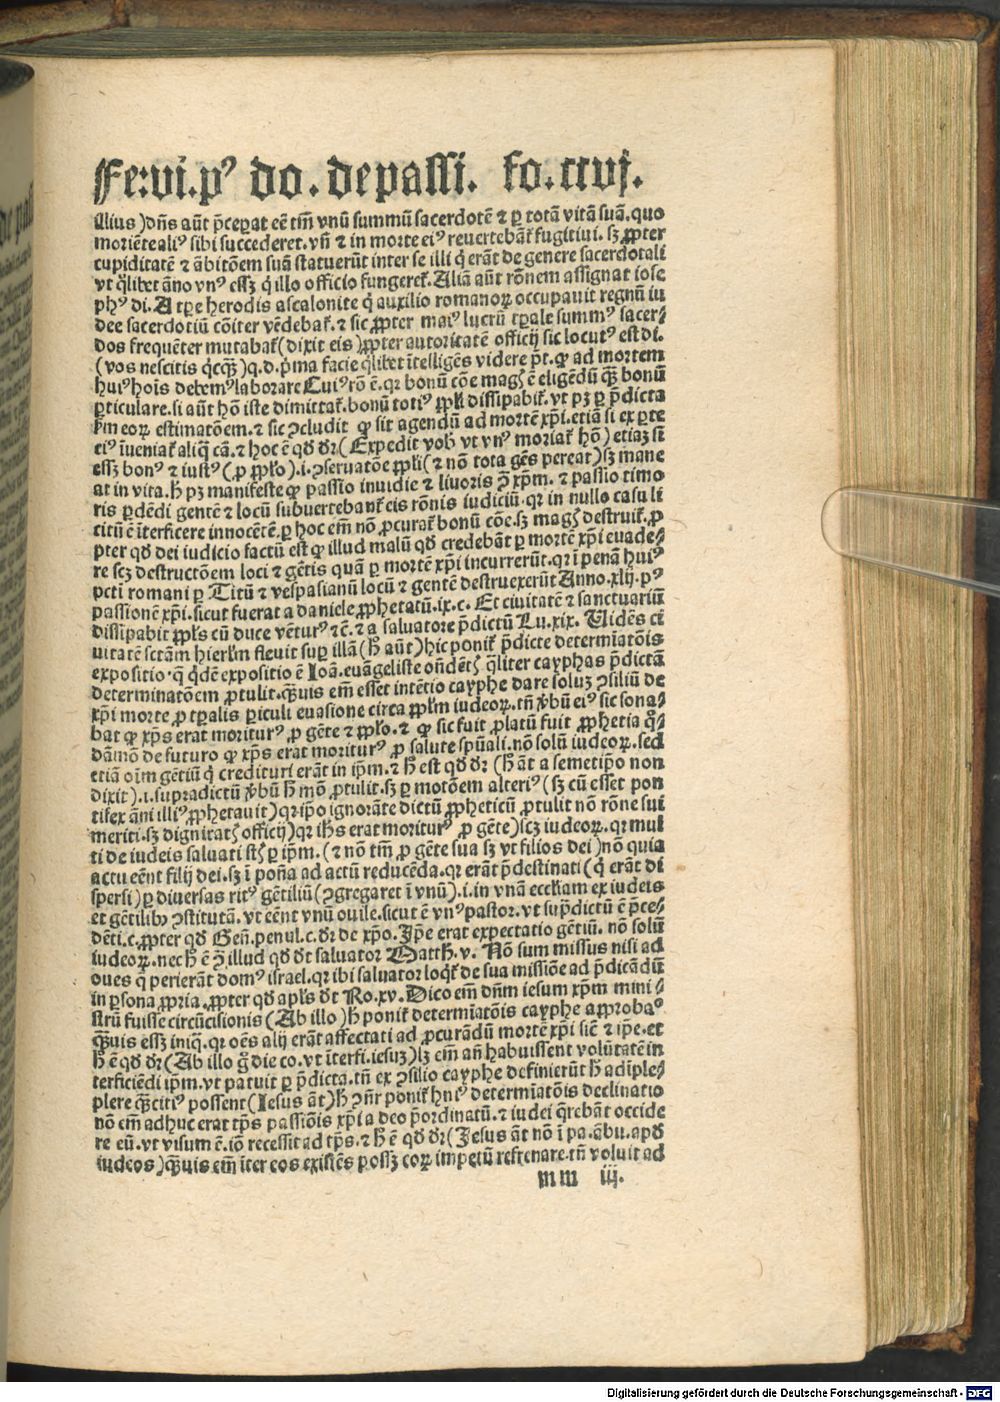 Fe:vi.pꝰ do. de passi. fo. ccvj.
illius )dn̄s aūt p̄ceꝑat eē tm̄ vnū summū sacerdotē ⁊ ꝑ totā vitā suā. quo
moriēte aliꝰ sibi succederet. vñ ⁊ in morte eiꝰ reuertebāt̄ fugitiui. sꝫ ꝓpter
cupiditatē ⁊ ābitōem suā statuerūt inter se illi q̄ erāt de genere sacerdotali
vt q̄libet āno vnꝰ essꝫ q̄ illo officio fungeret̄. Aliā aūt rōnem assignat iose
phꝰ di. A tꝑe herodis ascalonite q̄ auxilio romanoꝝ occupauit regnū iu
dee sacerdotiū cōiter vēdebat̄. ⁊ sic ꝓpter maiꝰ lucrū tꝑale summꝰ sacer⸗
dos frequēter mutabat̄ (dixit eis )ꝓpter autoritatē officij sic locutꝰ est di.
(vos nescitis q̄cꝙ̄ )q.d. p̄ma facie q̄libet ītelligēs videre pōt. ꝙ ad mortem
huiꝰ hoīs debemꝰ laborare Cuiꝰ rō ē. qꝛ bonū cōe magꝭ ē eligēdū ꝙ̄ bonū
ꝑticulare. si aūt hō iste dimittat̄. bonū totiꝰ ꝓpli dissipabit̄. vt pꝫ ꝑ p̄dicta
ẜm eoꝝ estimatōem. ⁊ sic ꝯcludit ꝙ sit agendū ad mortē xp̄i. etiā si ex ꝑte
eiꝰ īueniat̄ aliq̄ cā. ⁊ hoc ē qd̄ dr̄ (Expedit vob̄ vt vnꝰ moriat̄ hō ) etiaꝫ si
essꝫ bonꝰ ⁊ iustꝰ (ꝓ ꝓplo ).i. ꝯseruatōe ꝓpli (⁊ nō tota gēs pereat ) sꝫ mane
at in vita. h̄ pꝫ manifeste ꝙ passio inuidie ⁊ liuoris ꝯ̄ xp̄m. ⁊ passio timo
ris ꝑdēdi gentē ⁊ locū subuertebant̄ eis rōnis iudiciū. qꝛ in nullo casu li
citū ē īterficere innocētē. ꝑ hoc em̄ nō ꝓcurat̄ bonū cōe. sꝫ magꝭ destruit̄. ꝓ
pter qd̄ dei iudicio factū est ꝙ illud malū qd̄ credebāt ꝑ mortē xp̄i euade⸗
re scꝫ destructōem loci ⁊ gētis quā ꝑ mortē xp̄i incurrerūt. qꝛ ī penā huiꝰ
pcti romani ꝑ Titū ⁊ vespasianū locū ⁊ gentē destruxerūt Anno. xlij. pꝰ
passionē xp̄i. sicut fuerat a daniele ꝓphetatū. ix. c. Et ciuitatē ⁊ sanctuariū
dissipabit ꝓpl's cū duce vēturꝰ ⁊c̄. ⁊ a saluatore p̄dictū Lu. xix. Uidēs ci
uitatē sctām hierl'm fleuit suꝑ illā (h̄ aūt ) hic ponit̄ p̄dicte determīatōis
expositio. q̄ q̄dē expositio ē Ioā. euāgeliste on̄dētꝭ q̄liter cayphas p̄dictā
determinatōem ꝓtulit. ꝙ̄uis em̄ esset intētio cayphe dare soluꝫ ꝯsiliū de
xp̄i morte ꝓ tꝑalis ꝑiculi euasione circa ꝓpl'm iudeoꝝ. tn̄ v̄bū eiꝰ sic sona⸗
bat ꝙ xp̄s erat moriturꝰ ꝓ gēte ⁊ ꝓplo. ⁊ ꝙ sic fuit ꝓlatū fuit ꝓphetia q̄⸗
dāmō de futuro ꝙ xp̄s erat moriturꝰ ꝓ salute spūali. nō solū iudeoꝝ. sed
etiā oīm gētiū q̄ credituri erāt in ip̄m. ⁊ h̄ est qd̄ dr̄ (h̄ āt a semetip̄o non
dixit ).i. supradictū v̄bū h̄ mō ꝓtulit. sꝫ ꝑ motōem alteriꝰ (sꝫ cū esset pon
tifex āni illiꝰ ꝓphetauit ) qꝛ ip̄o ignorāte dictū ꝓpheticū ꝓtulit nō rōne sui
meriti. sꝫ dignitatꝭ officij ) qꝛ ih̄s erat moriturꝰ ꝓ gēte ) scꝫ iudeoꝝ. qꝛ mul
ti de iudeis saluati st̄ꝭ ꝑ ip̄m. (⁊ nō tm̄ ꝓ gēte sua sꝫ vt filios dei ) nō quia
actu eēnt filij dei. sꝫ ī poña ad actū reducēda. qꝛ erāt p̄destinati (q̄ erāt di
spersi ) ꝑ diuersas ritꝰ gētiliū (ꝯgregaret ī vnū ).i. in vnā eccl'iam ex iudeis
et gētilibꝫ ꝯstitutā. vt eēnt vnū ouile. sicut ē vnꝰ pastor. vt sup̄dictū ē p̄ce⸗
dēti. c. ꝓpter qd̄ Geñ. penul. c. dr̄ de xp̄o. Ip̄e erat expectatio gētiū. nō solū
iudeoꝝ. nec h̄ ē ꝯ̄ illud qd̄ dt̄ saluator Matth̄. v. Nō sum missus nisi ad
oues q̄ perierāt domꝰ israel. qꝛ ibi saluator loqt̄ de sua missiōe ad p̄dicādū
in ꝑsona ꝓpria. ꝓpter qd̄ apl's dt̄ Ro. xv. Dico em̄ dn̄m iesum xp̄m mini⸗
strū fuisse circūcisionis (Ab illo ) h̄ ponit̄ determīatōis cayphe aꝓbaꝰ
ꝙ̄uis essꝫ iniq̄. qꝛ oēs alij erāt affectati ad ꝓcurādū mortē xp̄i siē ⁊ ip̄e. et
h̄ ē qd̄ dr̄ (Ab illo g̊ die co. vt īterfi. iesuꝫ ) lꝫ em̄ añ habuissent volūtatē in
terficiēdi ip̄m. vt patuit ꝑ p̄dicta. tn̄ ex ꝯsilio cayphe definierūt h̄ adiple⸗
plere ꝙ̄citiꝰ possent (Iesus āt ) h̄ ꝯn̄r ponit̄ hꝰ determīatōis declinatio
nō em̄ adhuc erat tp̄s passiōis xp̄i a deo p̄ordinatū. ⁊ iudei q̄rebāt occide
re eū. vt visum ē. iō recessit ad tp̄s. ⁊ h̄ ē qd̄ dr̄ (Jesus āt nō ī pa. ābu. apd̄
iudeos ) ꝙ̄uis em̄ īter eos existēs possꝫ eoꝝ impetū refrenare. tn̄ voluit ad
mm iij.
Digitalisierung gefördert durch die Deutsche Forschungsgemeinschaft - DFG